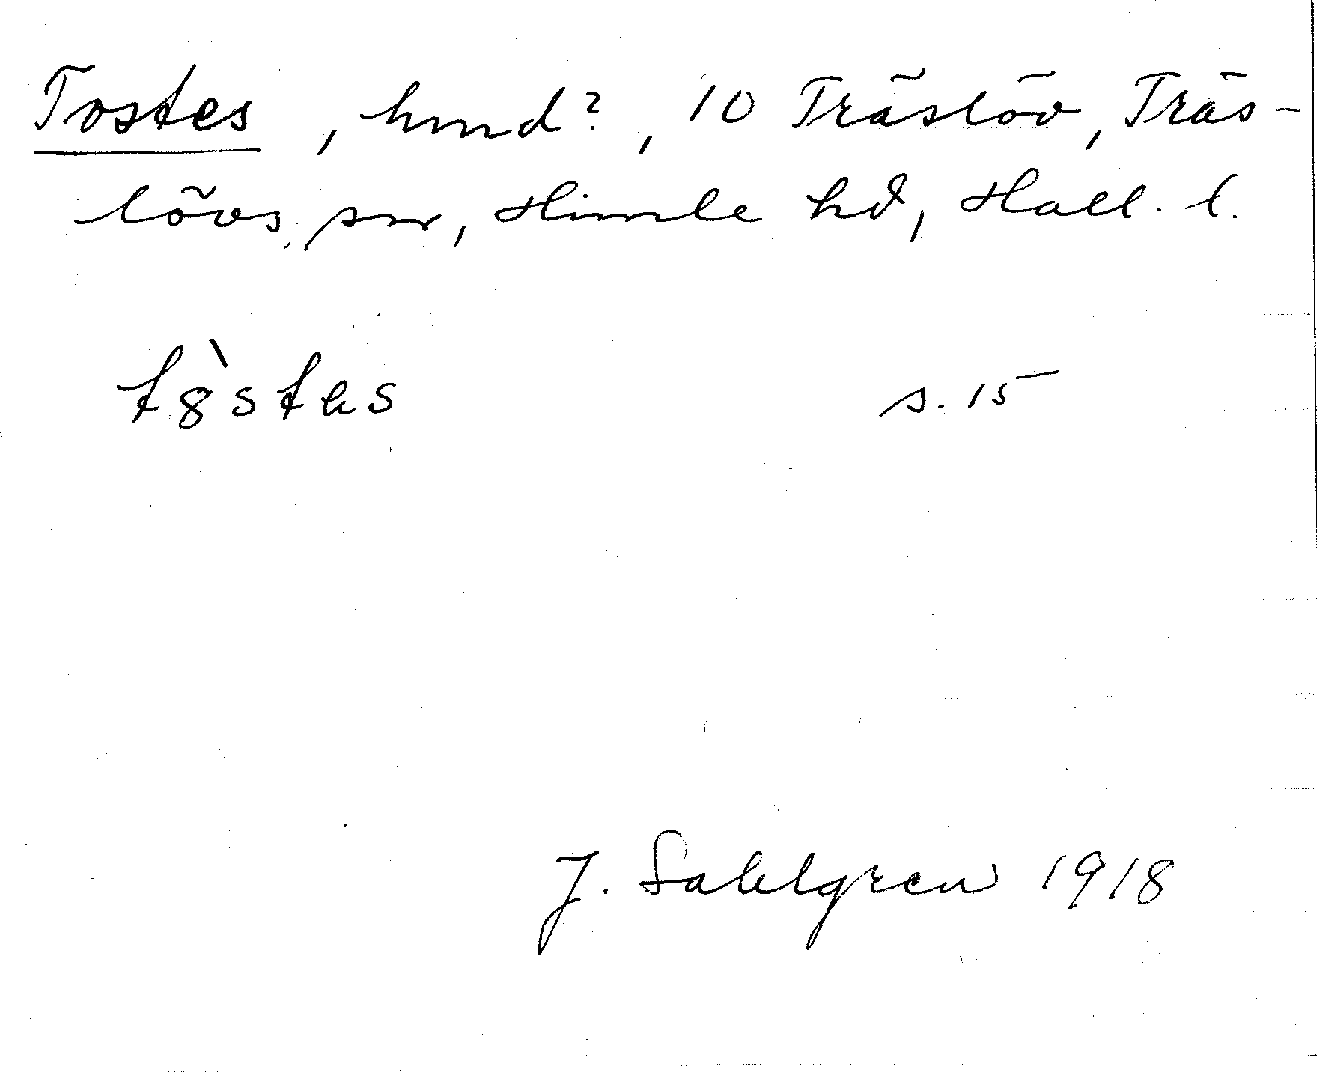 Tostes, hmd?, 10 Träslöv, Träs-
lövs sn, Himle hd, Hall. l.
tȣ̀stəs s. 15
J. Sahlgren 1918